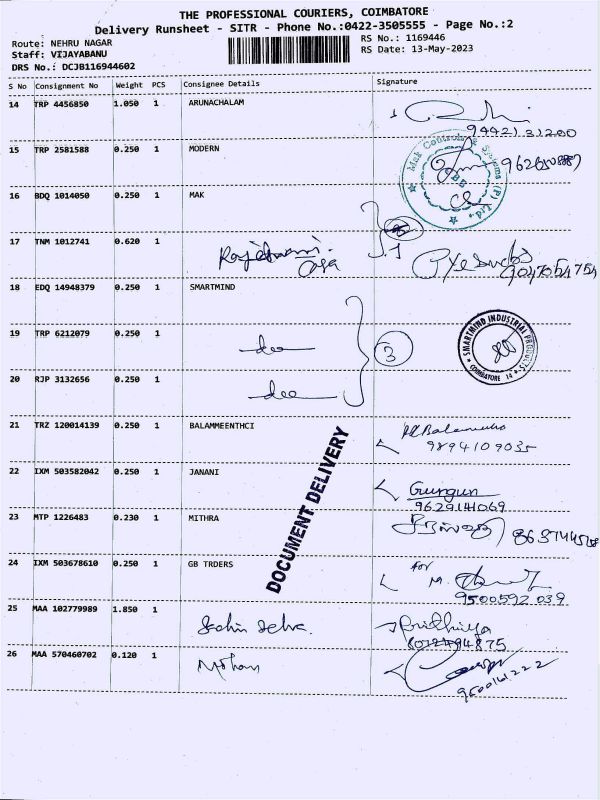 THE PROFESSIONAL COURIERS, COIMBATORE
Delivery Runsheet - SITR - Phone No.:0422-3505555 - Page No.:2
Route: NEHRU NAGAR
RS No.: 1169446
Staff: VIJAYABANU
RS Date: 13-May-2023
DRS No.: DCJB116944602
S No Consignment No Weight PCS Consignee Details Signature
14 TRP 4456850 1.050 1 ARUNACHALAM
9442131200
15 TRP 2581588 0.250 1 MODERN
Mak Controls & Systems (P) Ltd.,
16 BDQ 1014050 0.250 1 MAK
17 TNM 1012741 0.620 1
18 EDQ 14948379 0.250 1 SMARTMIND
19 TRP 6212079 0.250 1
3
SMARTMIND INDUSTRIAL PRODUCTS
COIMBATORE 14
20 RJP 3132656 0.250 1
21 TRZ 120014139 0.250 1 BALAMMEENTHCI
9894109035
DOCUMENT DELIVERY
22 IXM 503582042 0.250 1 JANANI
Gurgun
9629141069
23 MTP 1226483 0.230 1 MITHRA
24 IXM 503678610 0.250 1 GB TRDERS
for
M.
9500592039
25 MAA 102779989 1.850 1
8012494875
26 MAA 570460702 0.120 1 Mohan